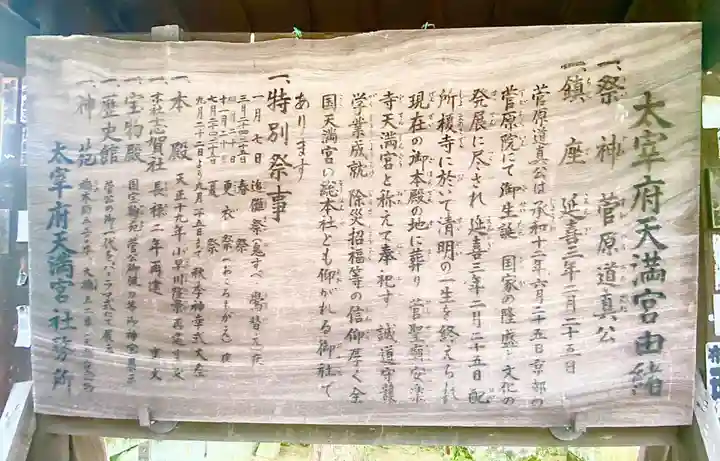 太宰府天満宮由緒
一、祭神 菅原道真公
一、鎮座 延喜三年二月二十五日
菅原道真公は承和十二年六月二十五日京都の
菅原院にて御生誕 国家の隆盛と文化の
発展に尽され 延喜三年二月二十五日配
所榎寺に於いて清明の一生を終えられ
現在の御本殿の地に葬り 菅聖廟安楽
寺天満宮と称えて奉祀す 誠道守護
学業成就 除災招福等の信仰厚く全
国天満宮の総本社とも仰がれる御社で
あります
一、特別祭事
一月七日 追儺祭(鬼すべ) 鷽替え
三月 春祭
十一月二十日 更衣祭
七月二十四日 夏祭
九月二十一日より九月二十五日まで 秋季神幸式大祭
一、本殿 天正十九年小早川隆景再建
一、末社志賀社 長禄二年再建 重文
一、宝物殿 国宝翰苑 菅公御佩刀等
一、歴史館 菅公の御一代をハラマ式にて展示
一、神苑
太宰府天満宮社務所